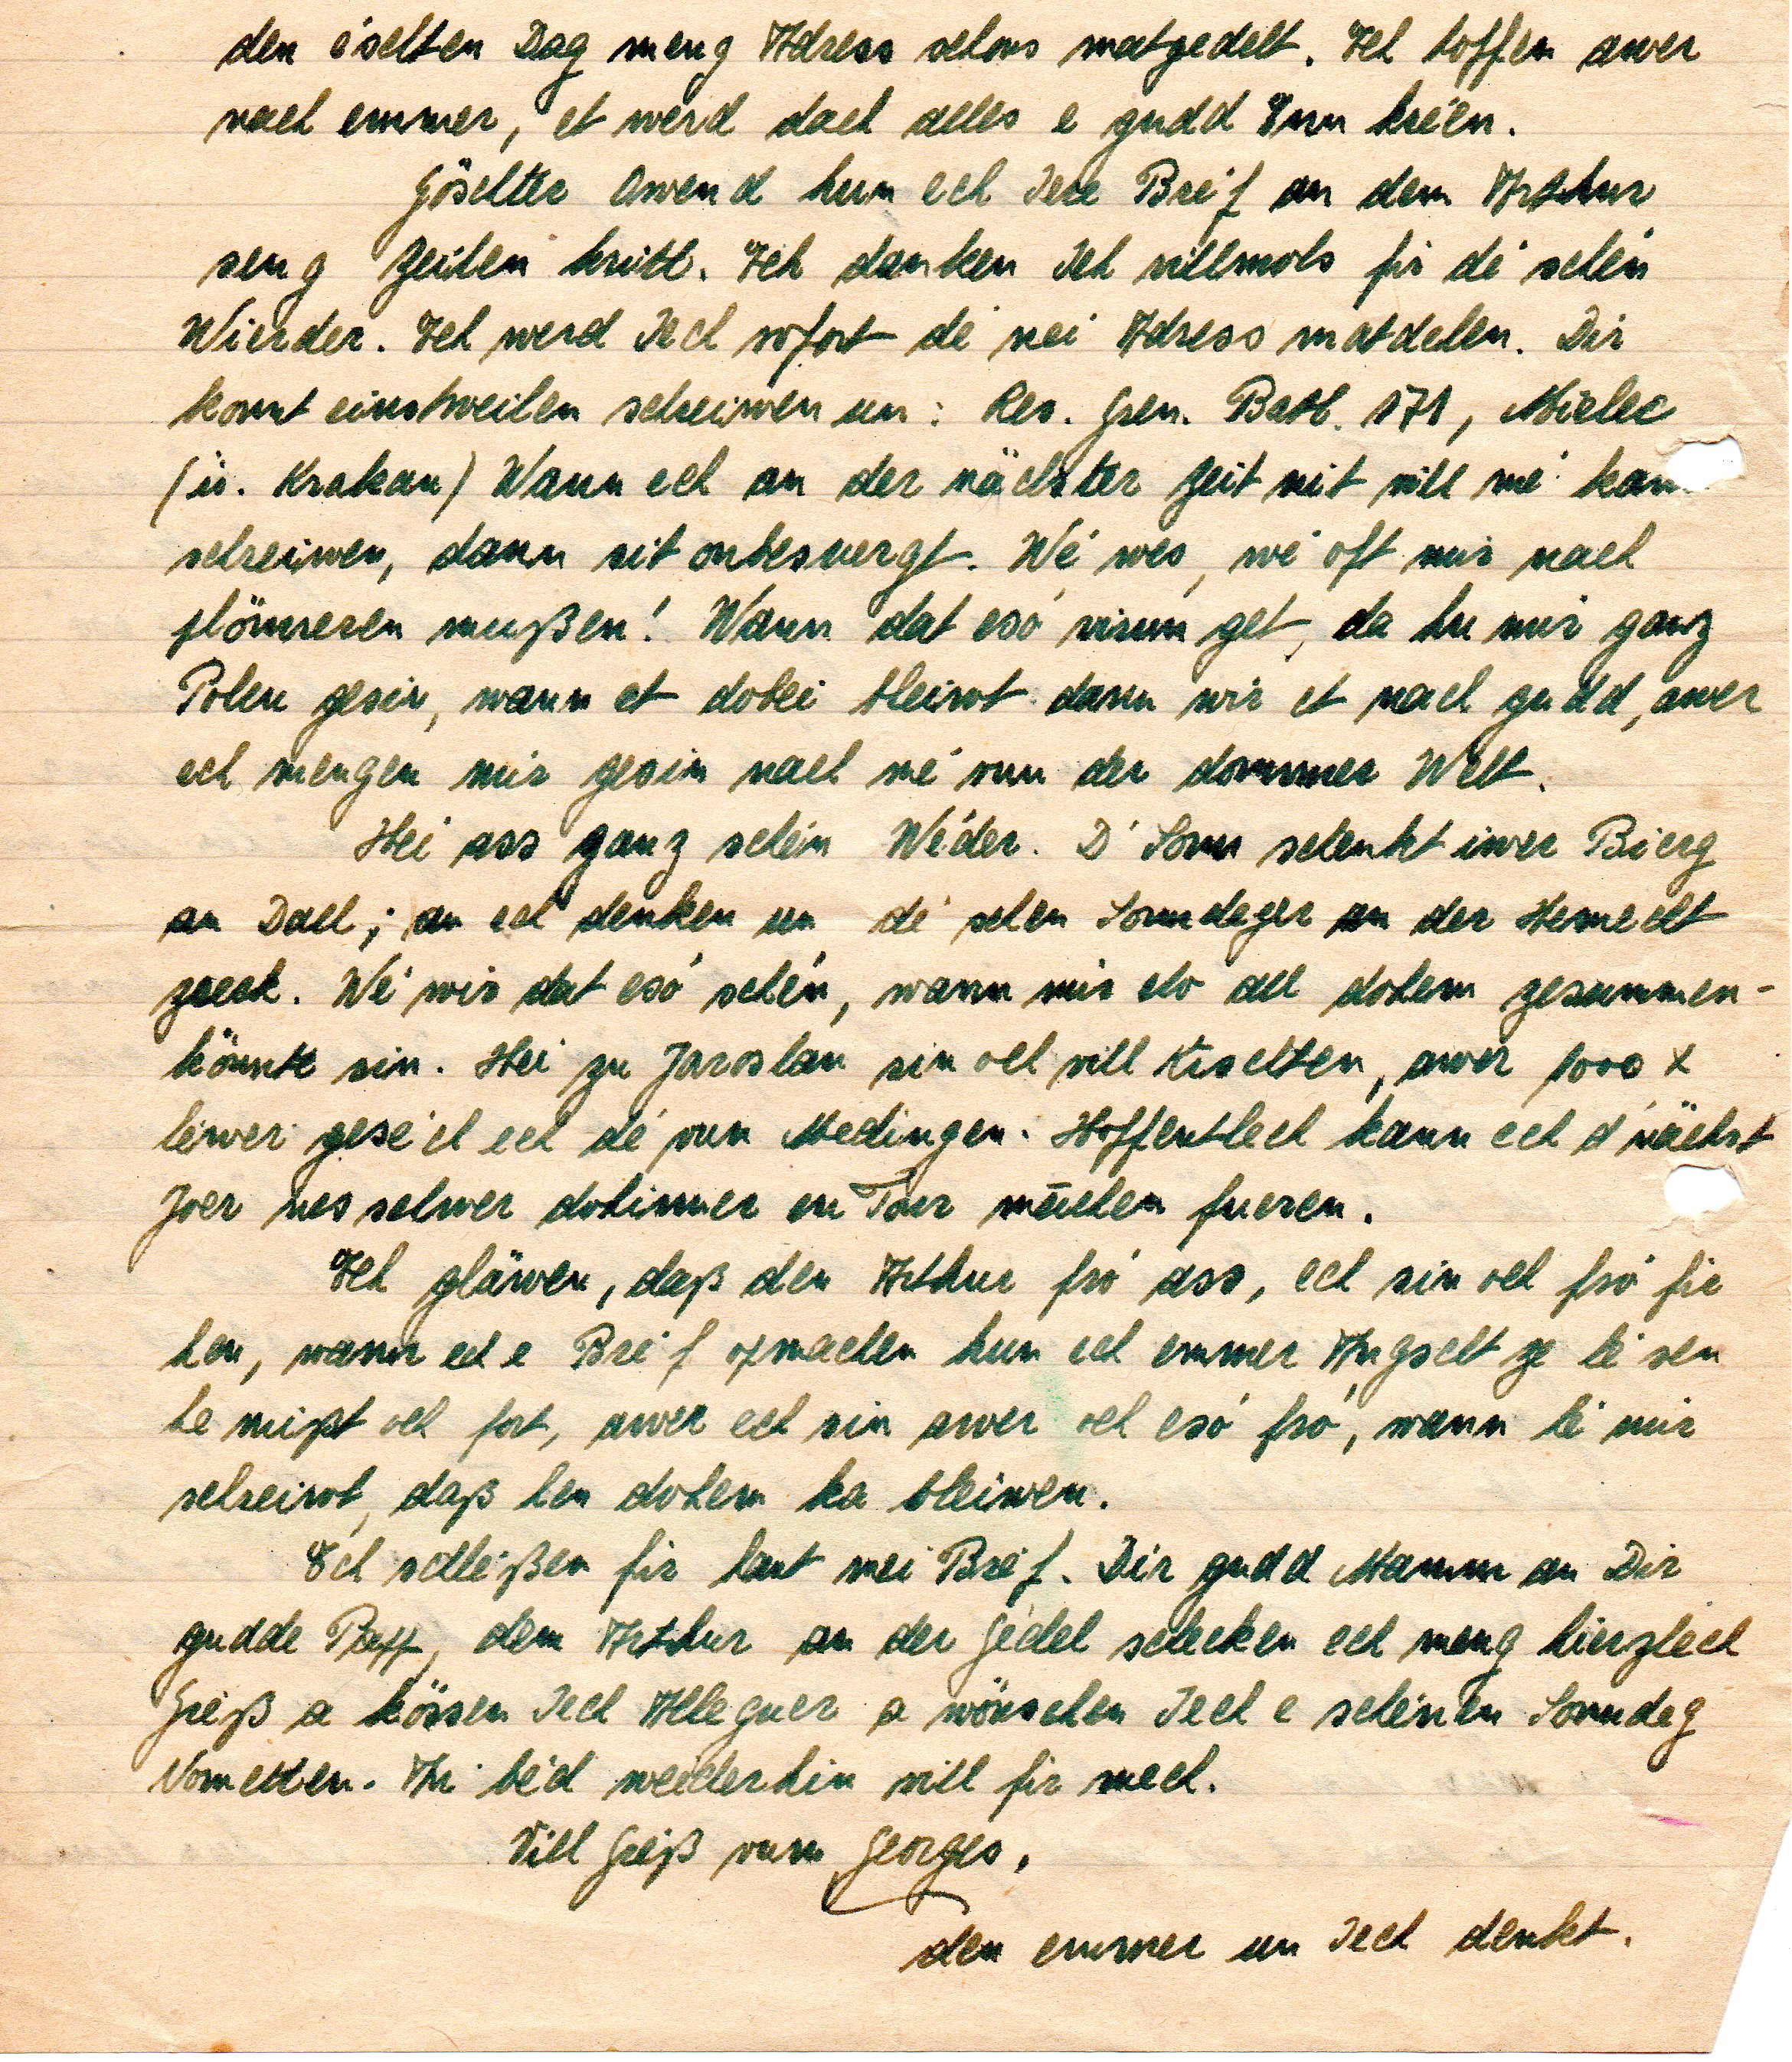 den éischten Dag meng Adress schons matgedelt. Ech hoffen awer
nach emmer, et werd dach alles e gudd Enn kréen.
Göschter Owend hun ech Iere Bréif an dem Arthur
seng Zeilen kritt. Ech danken Iech villmols fir dé schén
Wierder. Ech werd Iech sofort dé nei Adress matdelen. Dir
kommt einstweilen schreiwen un: Res. Gren. Batl. 171, Mielec
(ü. Krakau) Wann ech an der nächster Zeit nit vill mé kan
schreiwen, dann sit onbesuergt. Wé wes, wé oft mir nach
plönneren mußen! Wann dat esó virun get, da hu mir ganz
Polen gesin, wann et dobei bleiwt dann wir et nach gudd, awer
ech mengen mir gesin nach mé vun der dommer Welt.
Hei ass ganz schéin Wéder. D'Sonn schenkt iwer Bierg
an Dall; an ech denken un dé schen Sonndeger an der Hemecht
zreck. Wé wir dat esó schén, wann mir elo all dohem zesummen-
könnte sin. Hei zu Jaroslau sin och vill Kischten, awer 1000 x
léiwer geséch ech dé vun Medingen. Hoffentlech kann ech d'nächst
Joer nes selwer dohinner en Tour mächen fueren.
Ech gläwen, daß den Arthur fró ass, ech sin och fró fir
hen, wann ech e Bréif opmachen hun ech emmer Angscht ze lésen
he müßt och fort, awer ech sin awer och esó fró, wann hé mir
schreiwt, daß hen dohem ka bleiwen.
Ech schléißen fir haut mei Bréif. Dir gudd Mamm an Dir
gudde Papp, dem Arthur an der Gédel schecken ech meng hierzlech
Gréiß a kössen Iech Alleguer a wönschen Iech e schéinen Sonndeg
Nometten. An béd weiderhin vill fir mech.
Vill Gréiß vum Georges,
den emmer un Iech denkt.